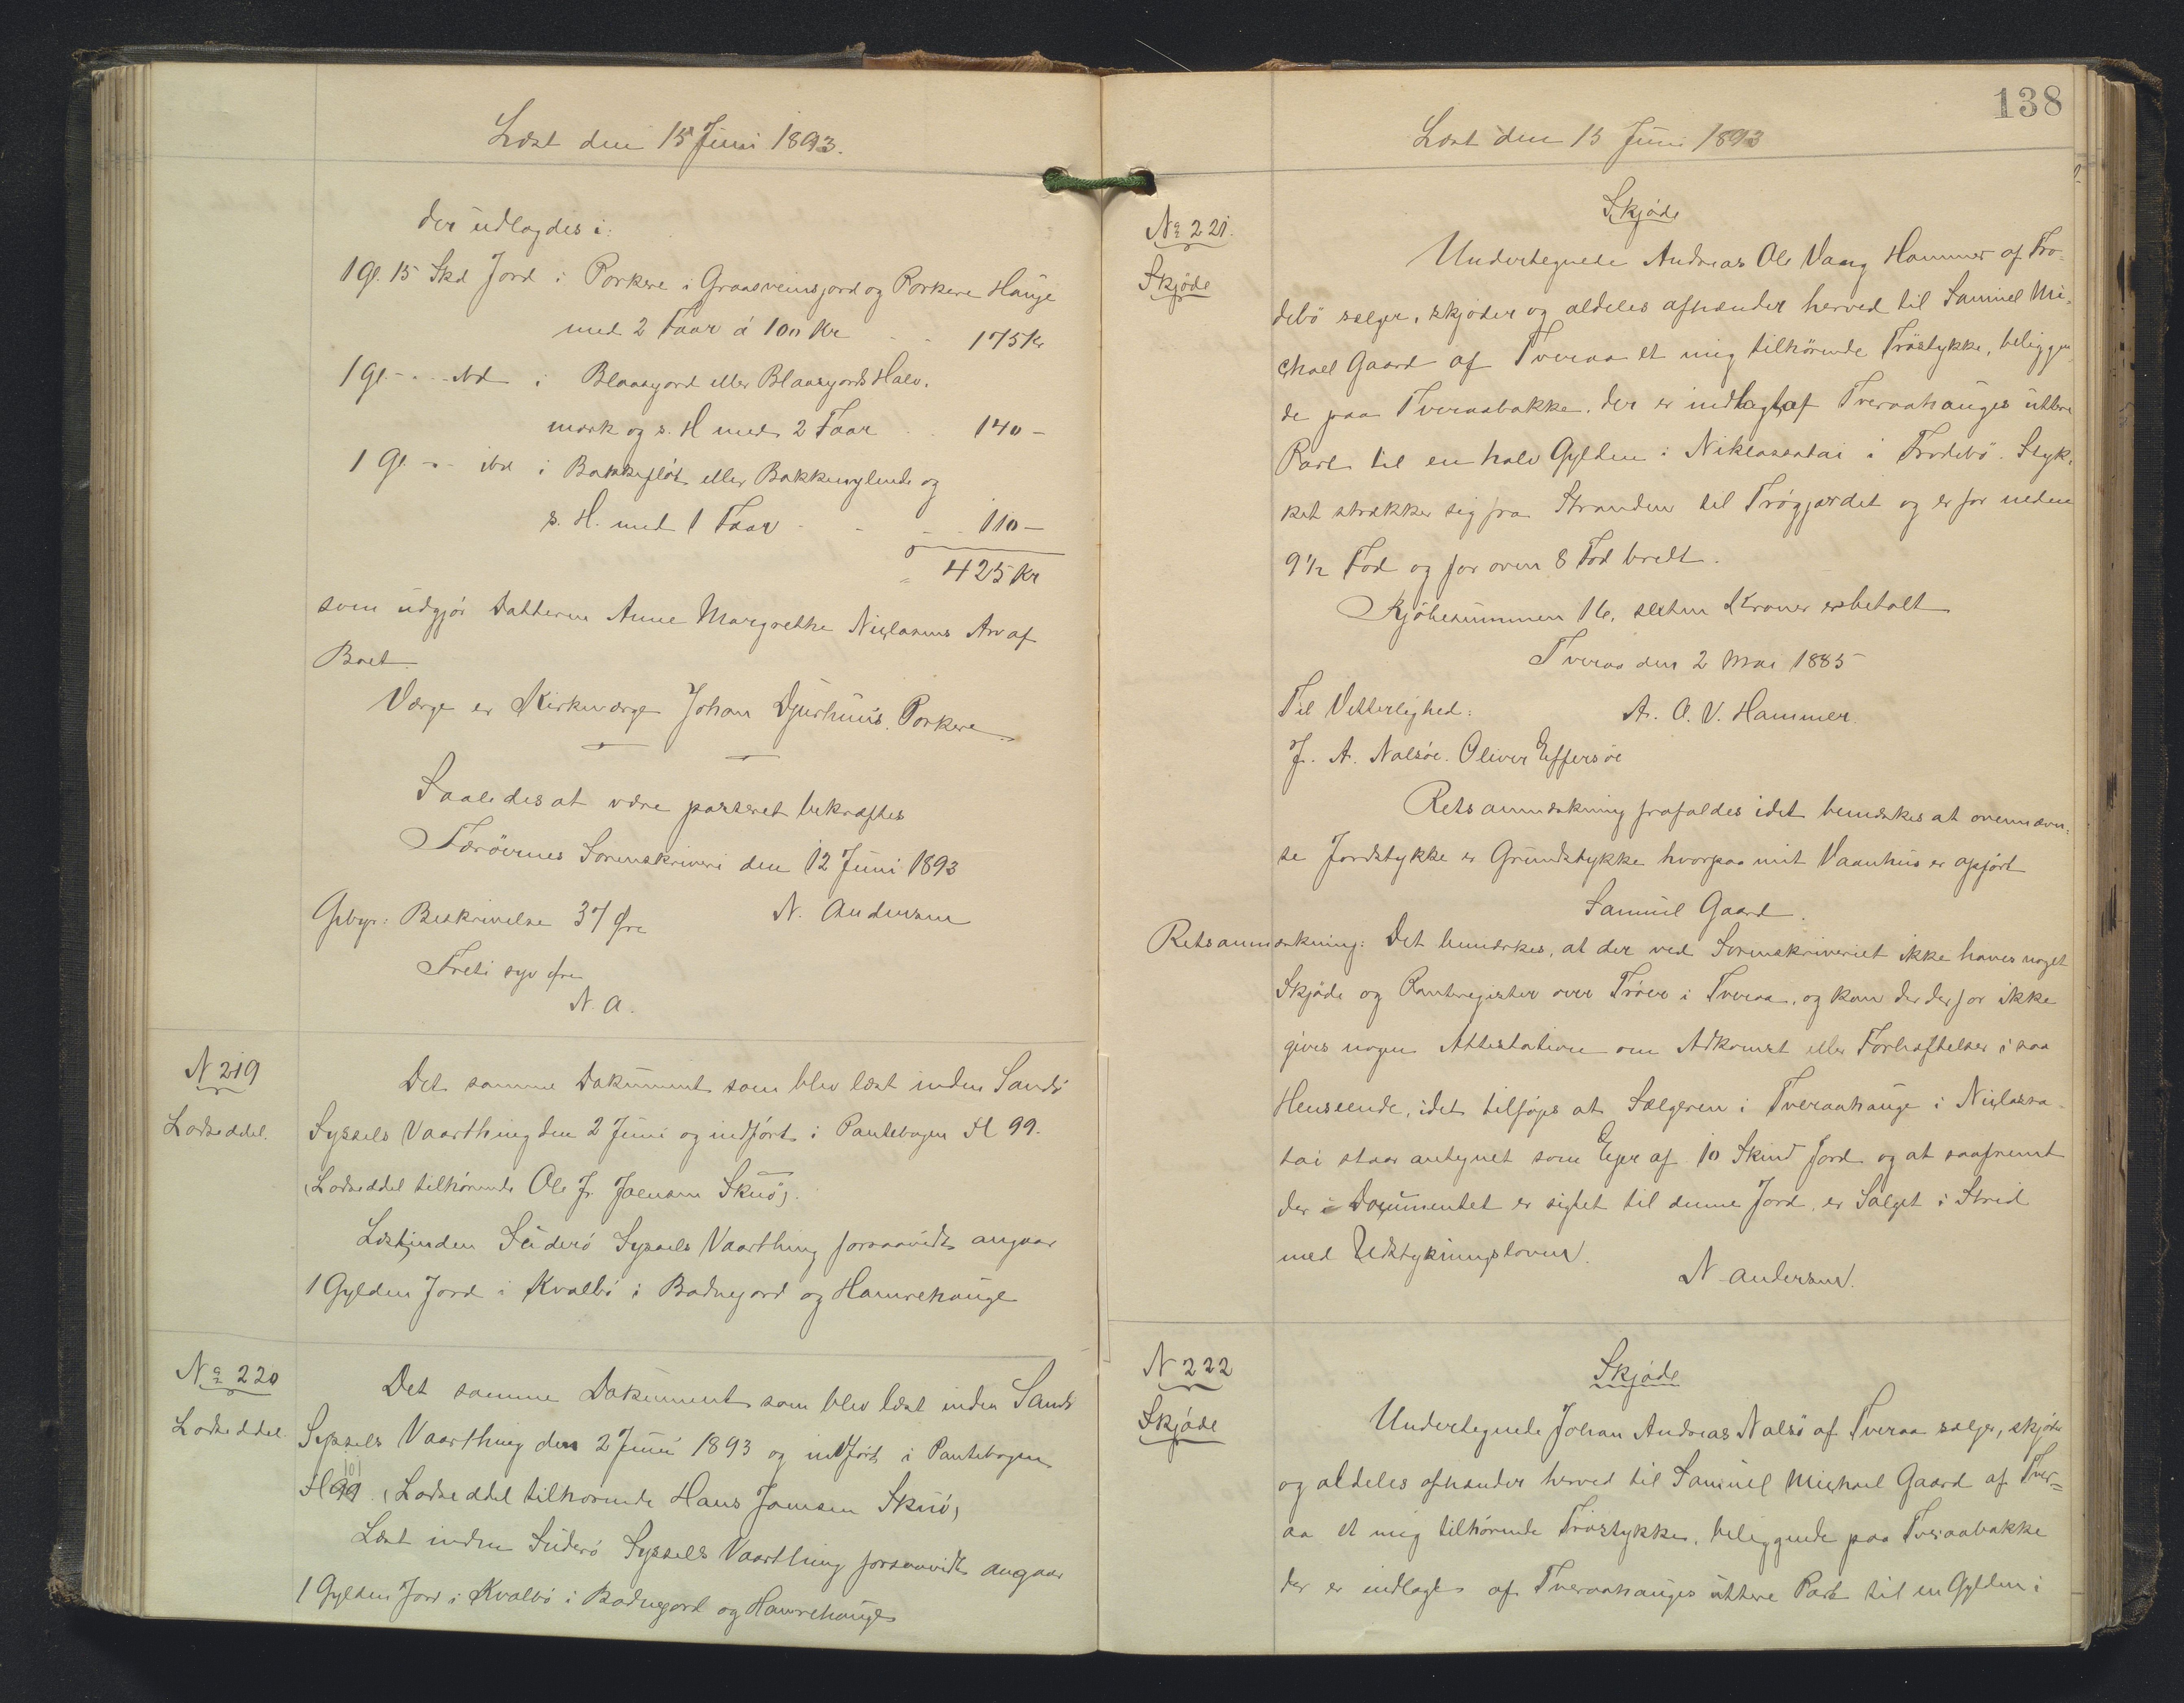 Læst den 15 Juni 1893.
der udlagdes i:
1 Gl. 15 Skd Jord i Porkere i Graasveinsjord og Porkere Hauge
med 2 Faar á 100 Kr - - 175 Kr
1 Gl. - - - ibd i Blaasgord eller Blaasgords Halv.
mark og s. H med 2 Faar - - 140 -
1 Gl. - - ibd i Bakkefløt eller Bakkenylende og
s. H. med 1 Faar - - - 110 -
425 Kr
som udgjør Datteren Anne Margrethe Niclasens Arv af
Boet.
Værge er Kirkeværge Johan Djurhuus. Porkere
Saaledes at være passeret bekræftes
Færøernes Sorenskriveri den 12 Juni 1893
Gebyr: Beskrivelse 37 Øre N. Andersen
Treti syv Øre
N. A.
N 219
Lodseddel.
Det samme Dokument som blev læst inden Sands
Syssels Vaarthing den 2 Juni og indført i Pantebogen H 99.
(Lodseddel tilhørende Ole Jr. Joensen Skuø).
Læst inden Suderø Syssels Vaarthing forsaavidt angaar
1 Gylden Jord i Kvalbø i Badnegord og Hamrehauge
No 220
Lodseddel
Det samme Dokument som blev læst inden Sands
Syssels Vaarthing den 2 Juni 1893 og indført i Pantebogen
101
H 99. (Lodseddel tilhørende Hans Joensen Skuø)
Læst inden Suderø Syssels Vaarthing forsaavidt angaar
1 Gylden Jord i Kvalbø i Badnegord og Hamrehauge
138
Læst den 15 Juni 1893
No 221.
Skjøde
Skjøde
Undertegnede Andreas Ole Vang Hammer af Fro-
debø sælger, skjøder og aldeles afhænder herved til Samuel Mi-
chael Gaard af Tveraa et mig tilhørende Trøstykke, beliggen
de paa Tveraabakke, der er indlagt af Tveraahauges uttere
Part til en halv Gylden i Niklassatai i Frodebø. Styk-
ket strækker sig fra Stranden til Trøgjærdet og er for neden
9 1/2 Fod og for oven 8 Fod bredt.
Kjøbesummen 16, sexten Kroner er betalt
Tveraa den 2 Mai 1885
Til Vitterlighed: A. O. V. Hammer.
J. A. Nalsøe. Oliver Effersøe
Retsanmærkning frafaldes idet bemærkes at ovennævn-
te Jordstykke er Grundstykke hvorpaa mit Vaanhus er opført
Samuel Gaard.
Retsanmærkning: Det bemærkes, at der ved Sorenskriveriet ikke haves noget
Skjøde og Panteregister over Trøer i Tveraa, og kan der derfor ikke
gives nogen Attestation om Adkomst eller Forhæftelser i saa
Henseende, idet tilføjes at Sælgeren i Tveraahauge i Niclassa-
tai staar antegnet som Ejer af 10 Skind Jord og at saafremt
der i Documentet er sigtet til denne Jord, er Salget i Strid
med Udstykningsloven.
N. Andersen.
N 222
Skjøde
Skjøde
Undertegnede Johan Andreas Nalsø af Tveraa sælger, skjøder
og aldeles afhænder herved til Samuel Michael Gaard af Tver=
aa et mig tilhørende Trøstykke, beliggende paa Tveraabakke
der er indlagt af Tveraahauges uttere Part til en Gylden i